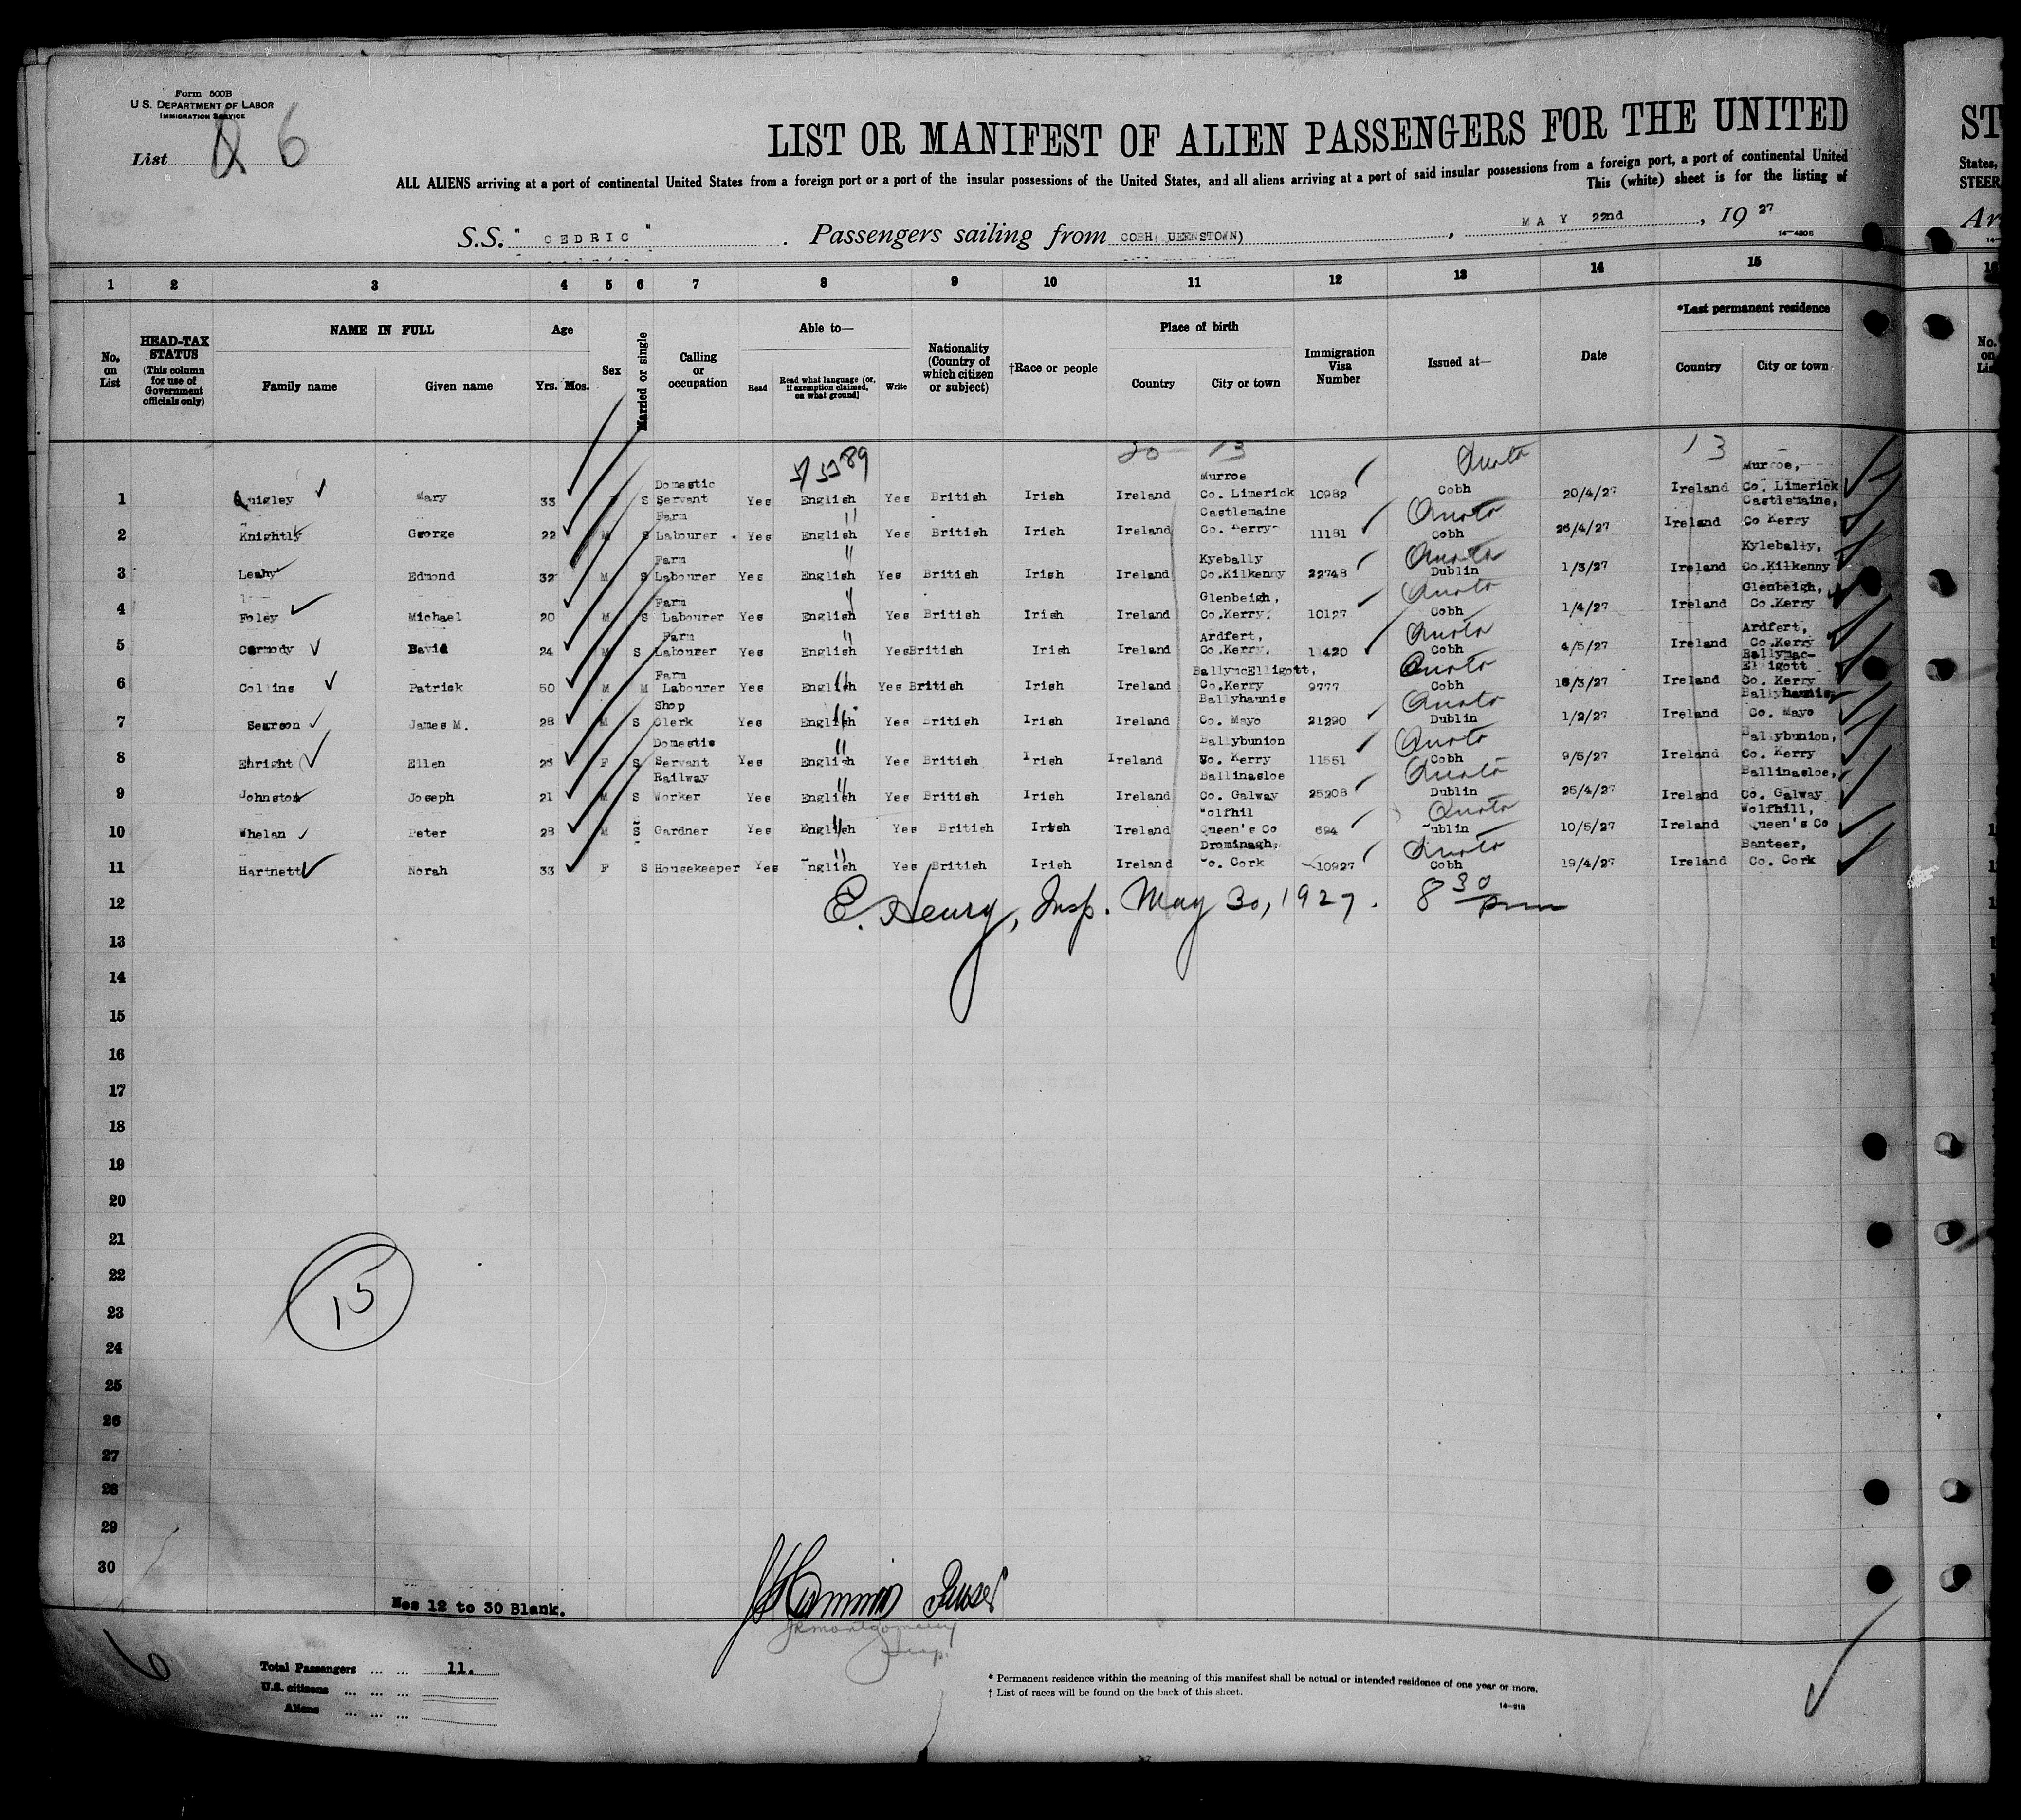 Form 500B
U.S. DEPARTMENT OF LABOR
IMMIGRATION SERVICE
List 6
LIST OR MANIFEST OF ALIEN PASSENGERS FOR THE UNITED
ST
ALL ALIENS arriving at a port of continental United States from a foreign port or a port of the insular possessions of the United States, and all aliens arriving at a port of said insular possessions from a foreign port, a port of continental United
States,
This (white) sheet is for the listing of
STEER
S.S. " CEDRIC " . Passengers sailing from COBH( UEENSTOWN) , MAY 22nd , 19 27
Ar
14—4205
1 2 3 4 5 6 7 8 9 10 11 12 13 14 15
No. on List
HEAD-TAX STATUS (This column for use of Government officials only)
NAME IN FULL
Family name Given name
Age
Yrs. Mos.
Sex
Married or single
Calling or occupation
Able to—
Read Read what language (or, if exemption claimed, on what ground) Write
Nationality (Country of which citizen or subject)
†Race or people
Place of birth
Country City or town
Immigration Visa Number
Issued at—
Date
*Last permanent residence
Country City or town
20 13 Quota 13
1 Quigley Mary 33 F S Domestic Servant Yes English Yes British Irish Ireland Murroe Co. Limerick 10982 Cobh 20/4/27 Ireland Murroe, Co. Limerick
2 Knightly George 22 M S Farm Labourer Yes English Yes British Irish Ireland Castlemaine Co. Kerry 11181 Quota Cobh 26/4/27 Ireland Castlemaine, Co Kerry
3 Leahy Edmond 32 M S Farm Labourer Yes English Yes British Irish Ireland Kyebally Co.Kilkenny 22748 Quota Dublin 1/3/27 Ireland Kylebally, Co.Kilkenny
4 Foley Michael 20 M S Farm Labourer Yes English Yes British Irish Ireland Glenbeigh, Co.Kerry. 10127 Quota Cobh 1/4/27 Ireland Glenbeigh, Co.Kerry
5 Carmody David 24 M S Farm Labourer Yes English Yes British Irish Ireland Ardfert, Co.Kerry. 11420 Quota Cobh 4/5/27 Ireland Ardfert, Co.Kerry
6 Collins Patrick 50 M M Farm Labourer Yes English Yes British Irish Ireland BallymcElligott, Co.Kerry 9777 Quota Cobh 18/3/27 Ireland Ballymac-Elligott Co. Kerry
7 Searson James M. 28 M S Shop Clerk Yes English Yes British Irish Ireland Ballyhaunis Co. Mayo 21290 Quota Dublin 1/2/27 Ireland Ballyhaunis, Co. Mayo
8 Enright Ellen F S Domestic Servant Yes English Yes British Irish Ireland Ballybunion Co. Kerry 11551 Quota Cobh 9/5/27 Ireland Ballybunion, Co. Kerry
9 Johnston Joseph 21 M S Railway Worker Yes English Yes British Irish Ireland Ballinasloe Co. Galway 25208 Quota Dublin 25/4/27 Ireland Ballinasloe, Co. Galway
10 Whelan Peter 28 M S Gardner Yes English Yes British Irish Ireland Wolfhil Queen's Co 694 Quota Dublin 10/5/27 Ireland Wolfhill, Queen's Co
11 Hartnett Norah 33 F S Housekeeper Yes English Yes British Irish Ireland Drominagh, Co. Cork 10927 Quota Cobh 19/4/27 Ireland Banteer, Co. Cork
12 E. Henry, Insp. May 30, 1927. 8 30 pm
13
14
15
16
17
18
19
20
21
22
15
23
24
25
26
27
28
29
30
Nos 12 to 30 Blank.
Purser
JR Montgomery
Insp.
6
Total Passengers ... ... 11.
U.S. citizens ... ... ...
Aliens ... ... ...
* Permanent residence within the meaning of this manifest shall be actual or intended residence of one year or more.
† List of races will be found on the back of this sheet.
14—218